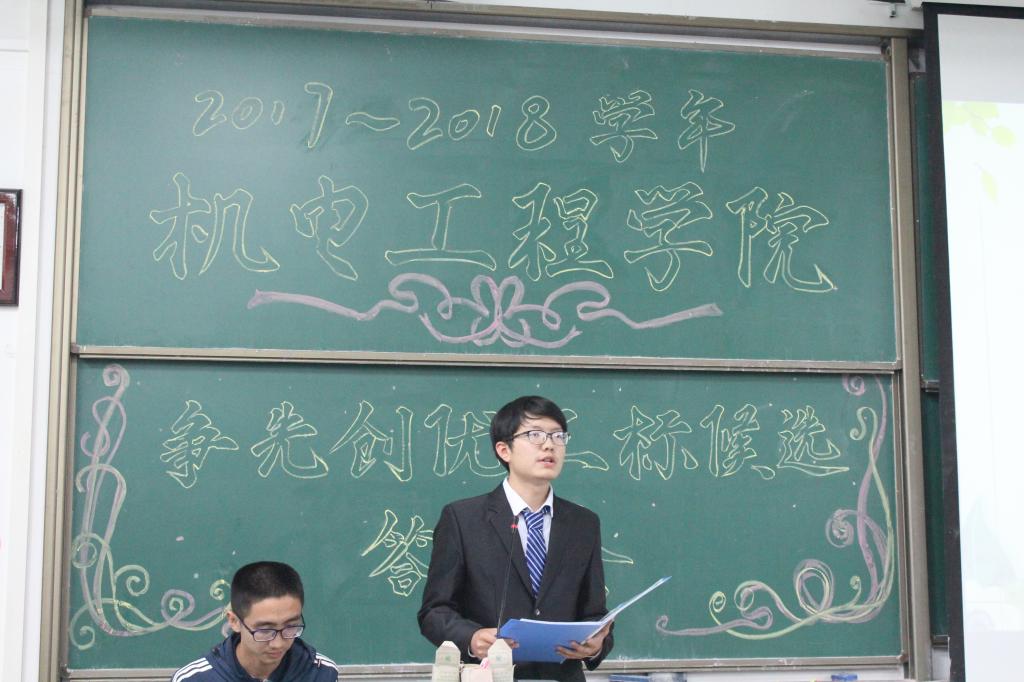 2017～2018学年
机电工程学院
争先创优 标候选
答